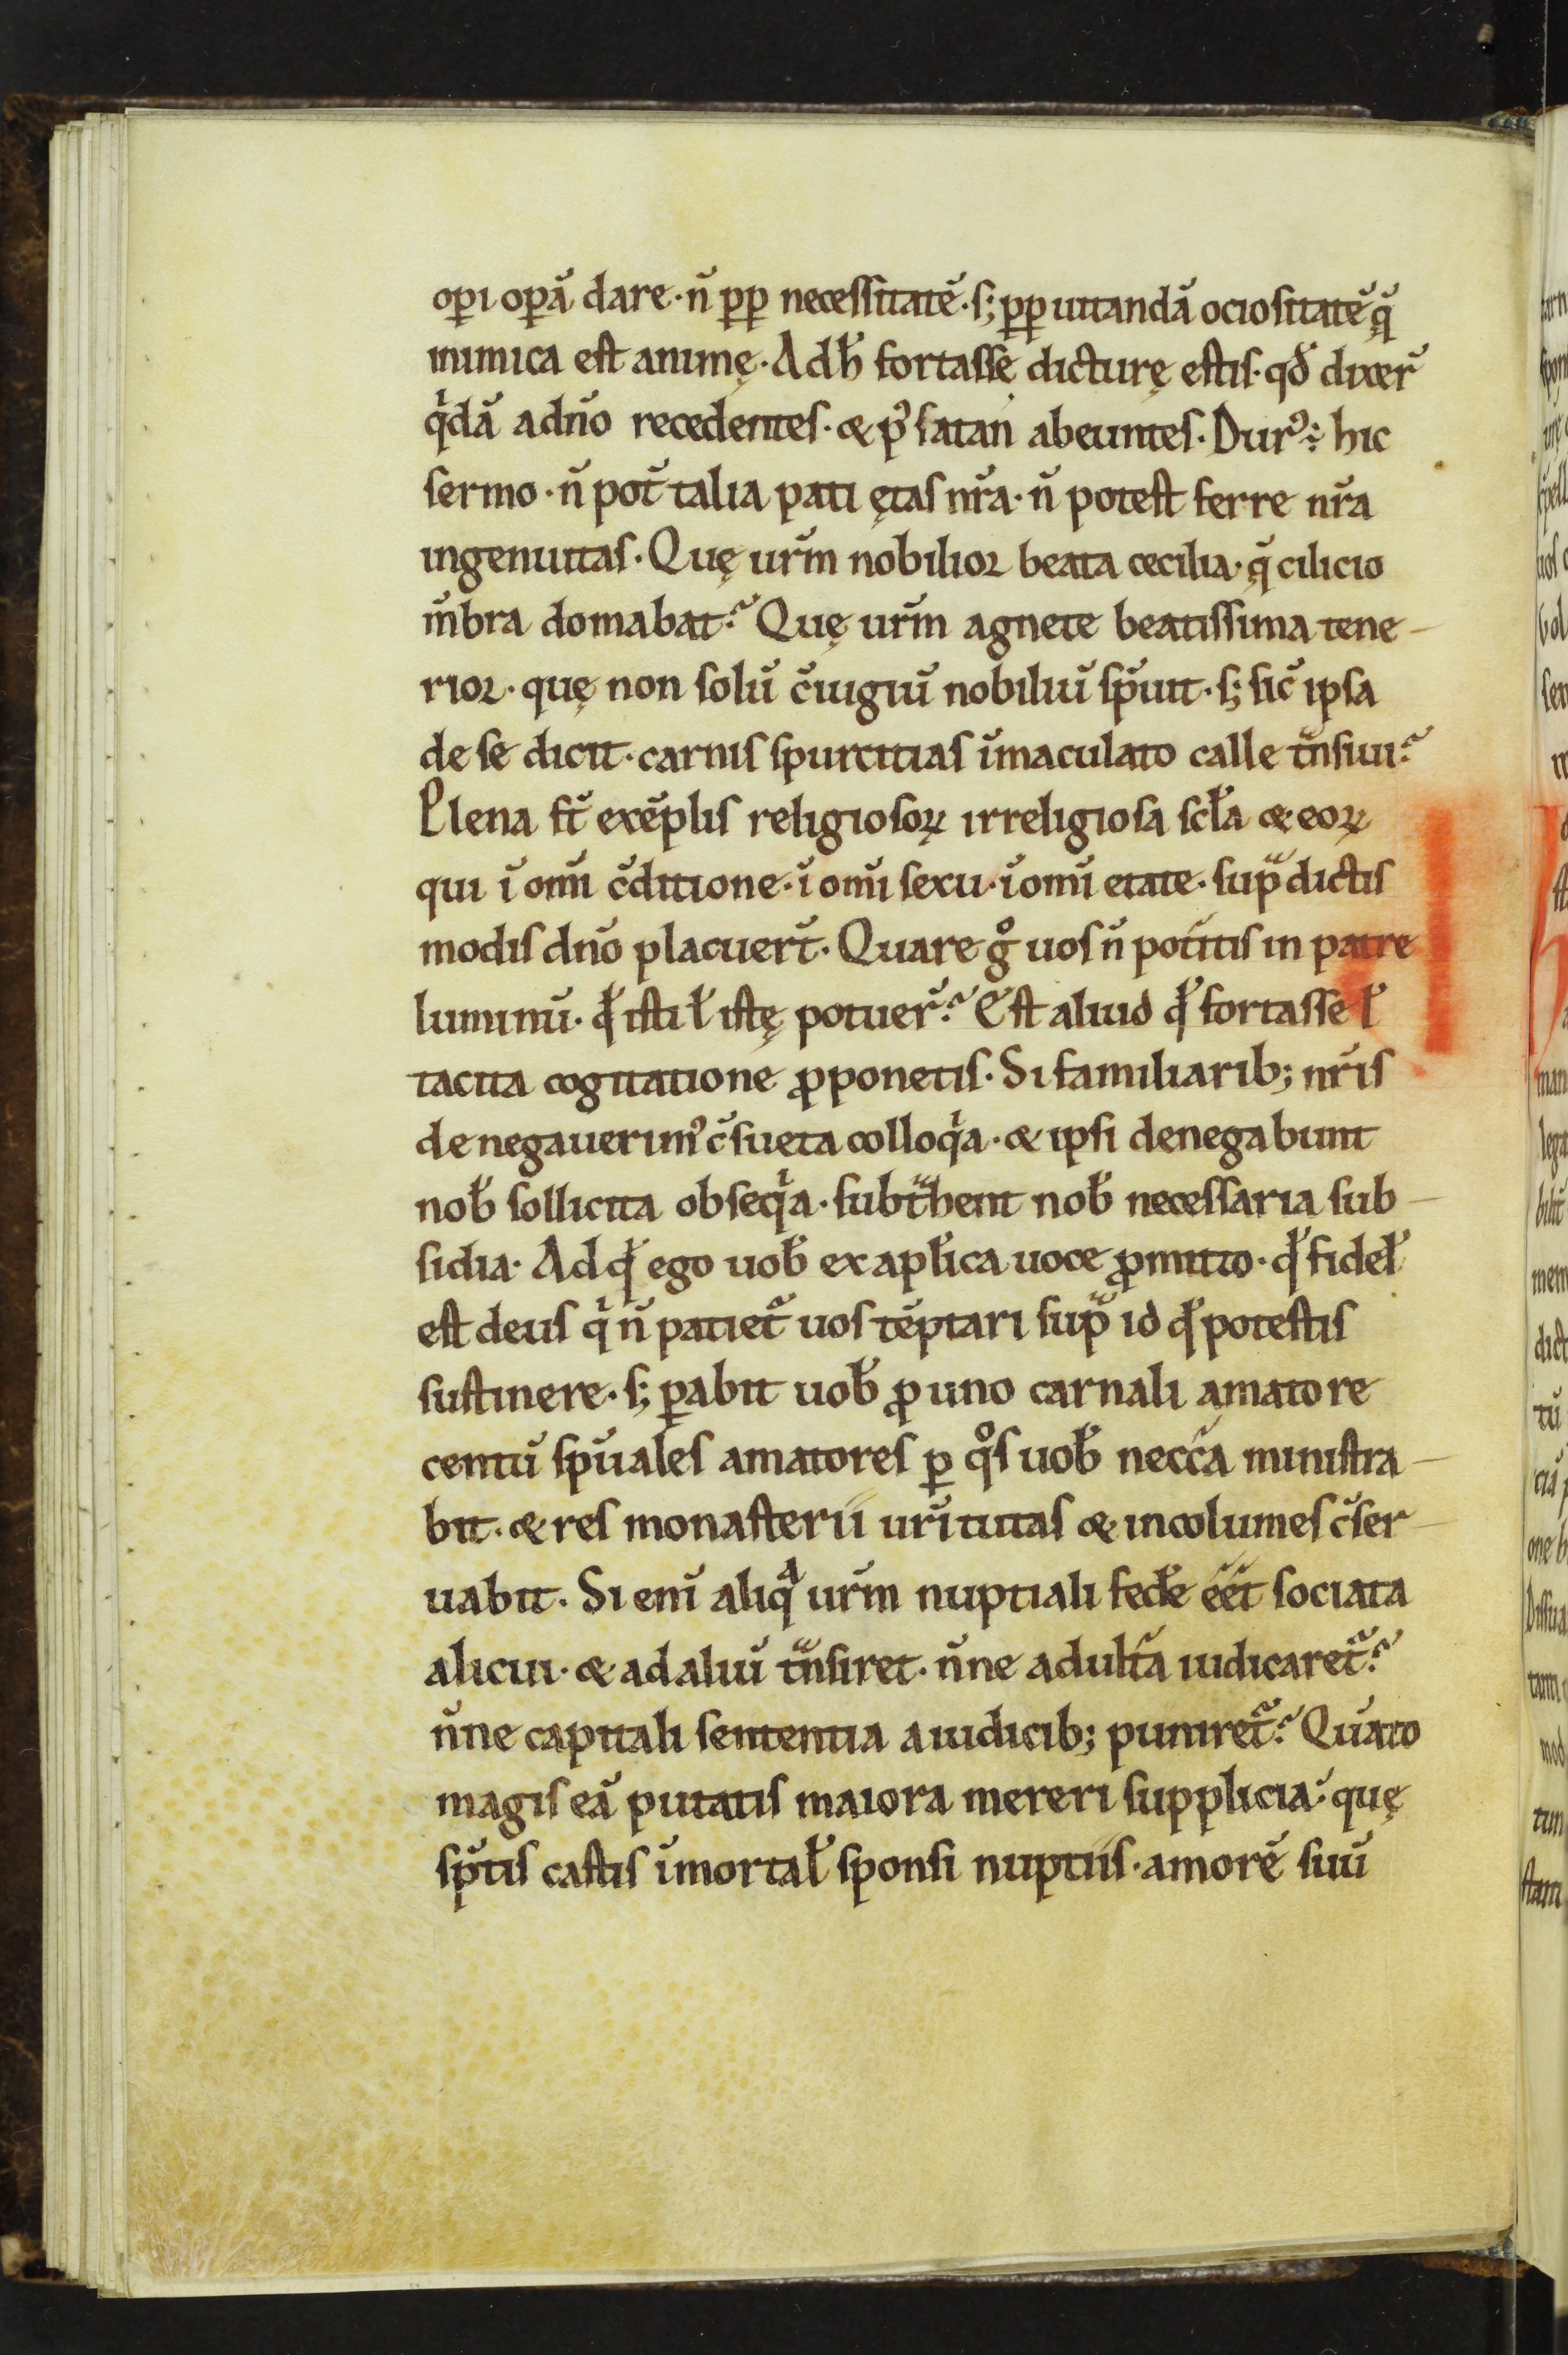 oꝑi oꝑā dare · n̄ ꝓꝑ necessitatē · s; ꝓꝑ uitandā ociositatē q̨̄
inimica est animę · Ad h̄ fortasse dicturę estis · qđ dixer̄
qͥdā a dn̄o recedentes · ⁊ pꝰ satan abeuntes · Durꝰ ÷ hic
sermo · n̄ pot̄ talia pati ętas nr̄a · n̄ potest ferre nr̄a
ingenuitas · Quę ur̄m nobilior beata cecilia · q̨̄ cilicio
m̄bra domabat? Quę ur̄m agnete beatissima tene-
rior · quę non solū c̄iugiū nobiliū sp̄uit · s; sic̄ ipsa
de se dicit · carnis spurcitias īmaculato calle tᷓnsiui?
Plena st̄ exēplis religiosoꝝ irreligiosa scl̄a ⁊ eoꝝ
qui ī om̄i c̄ditione · ī om̄i sexu · ī om̄i etate · supᷓdictis
modis dn̄o placuer̄t · Quare gͦ uos n̄ potitis in patre
luminū · qd̄ isti l̄ istę potuer̄? Est aliud qd̄ fortasse l̄
tacita cogitatione ꝓponetis · Si familiarib; nr̄is
denegauerimꝰ c̄sueta colloqͥa · ⁊ ipsi denegabunt
nob̄ sollicita obseqͥa · subtᷓhent nob̄ necessaria sub-
sidia · Ad qd̄ ego uob̄ ex apl̄ica uoce ꝓmitto · qd̄ fidel̄
est deus qͥ n̄ patiet᷑ uos tēptari supᷓ id qd̄ potestis
sustinere · s; ꝑabit uob̄ ꝓ uno carnali amatore
centū sp̄uales amatores ꝑ qͦs uob̄ necc̄a ministra-
bit · ⁊ res monasterii ur̄i tutas ⁊ incolumes c̄ser-
uabit · Si eni̅ aliqᷓ ur̄m nuptiali fedēe ēet sociata
alicui · ⁊ ad aliū tᷓnsiret · n̄ne adult̄a iudicaret᷑?
n̄ne capitali sententia a iudicib; puniret᷑? Quāto
magis eā putatis maiora mereri supplicia · quę
sp̄tis castis īmortal̄ sponsi nuptiis · amorē suū